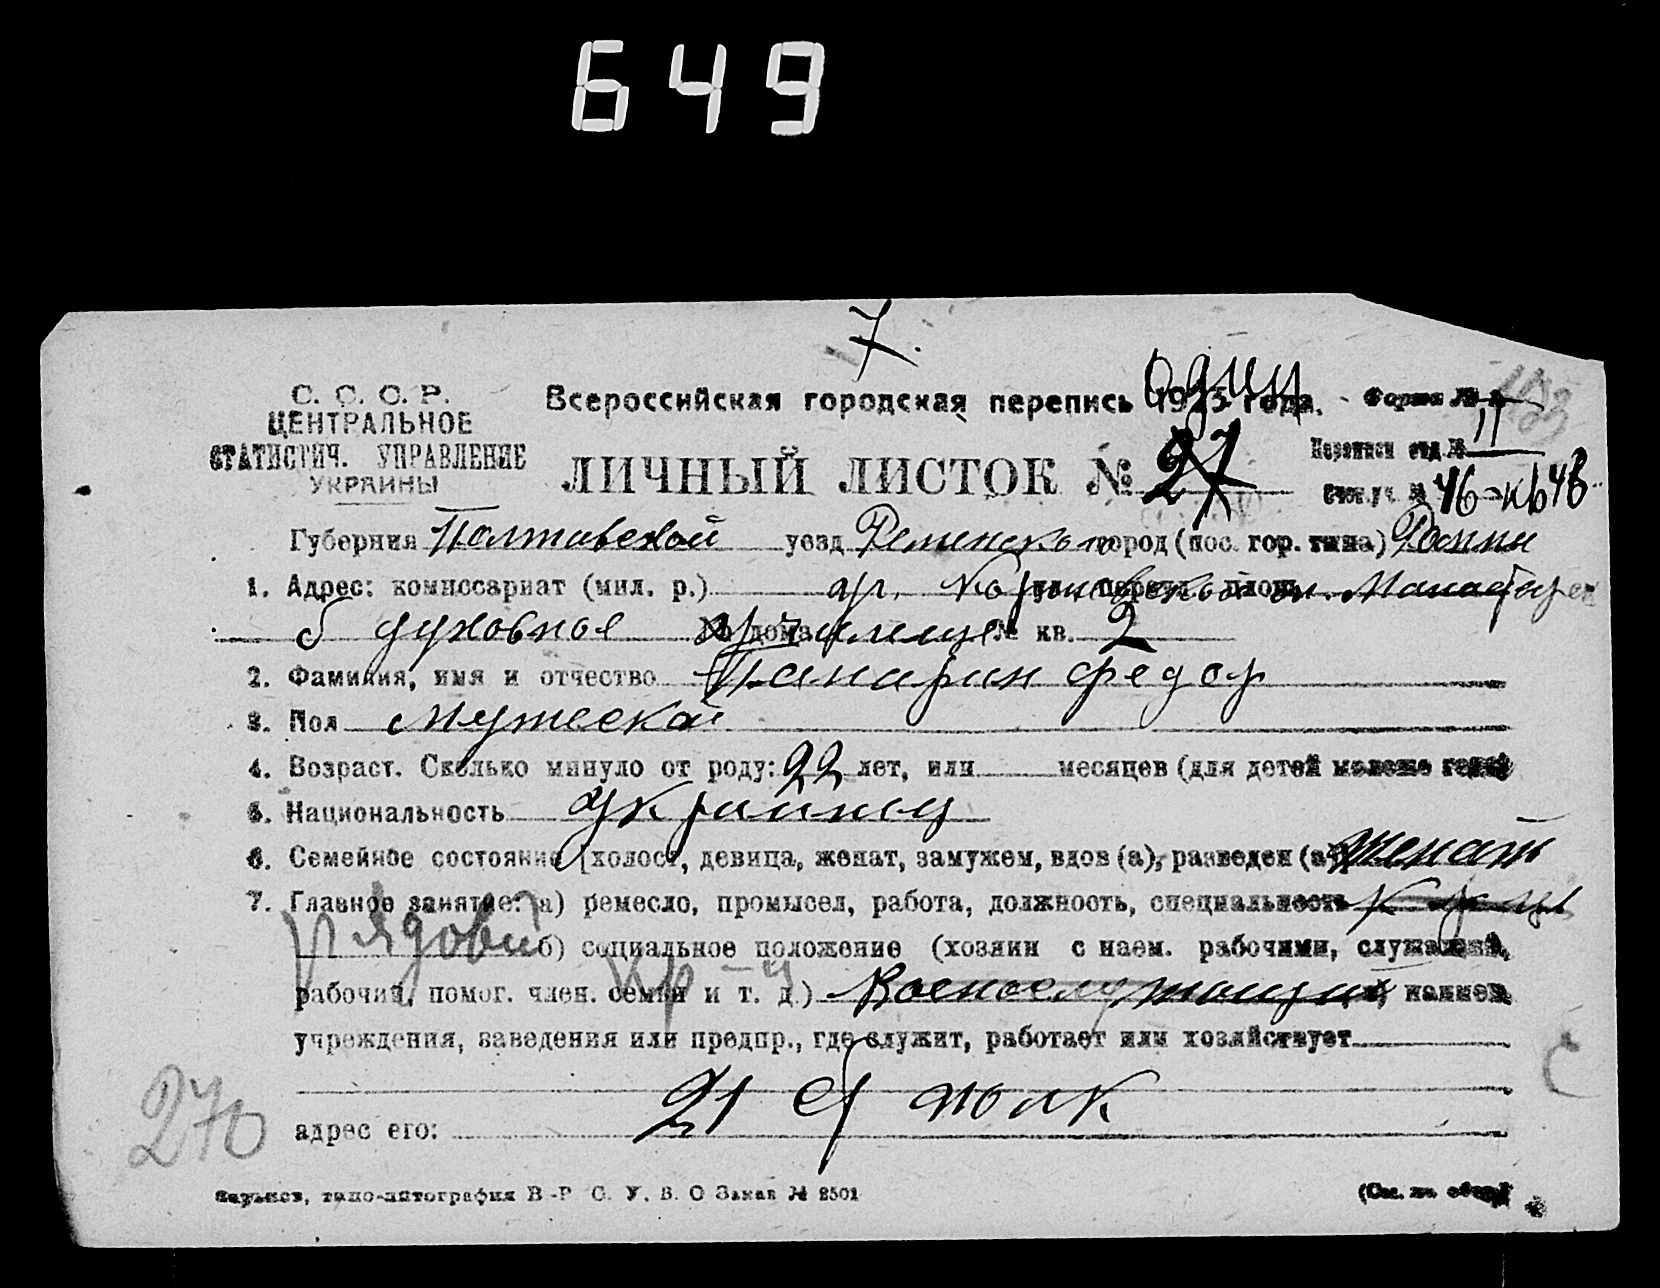 649
7.
С. С. С. Р.
ЦЕНТРАЛЬНОЕ
СТАТИСТИЧ. УПРАВЛЕНИЕ
УКРАИНЫ
Всероссийская городская перепись 1923 года. Форма №
один
ЛИЧНЫЙ ЛИСТОК № 27
Переписн отд. № 11
Счет. уч. № 46
Губерния Полтавской уезд Роменского город (пос. гор. типа) Ромны
1. Адрес: комиссариат (мил. р.)
б духовное училище № дома № кв. 2
2. Фамилия, имя и отчество Панарин Федор
3. Пол Мужеской
4. Возраст. Сколько минуло от роду: 22 лет, или месяцев (для детей моложе года)
5. Национальность украинец
6. Семейное состояние (холост, девица, женат, замужем, вдов (а), разведен (а)) женат
7. Главное занятие: а) ремесло, промысел, работа, должность, специальность
рядовой б) социальное положение (хозяин с наем. рабочими, служащий,
рабочий, помог. член. семьи и т. д.) Военнослужащий наимен.
кр-ц
учреждения, заведения или предпр., где служит, работает или хозяйствует
21 полк
адрес его:
270
Харьков, типо-литография В-Р С. У. В. О Заказ № 2501
(См. на обор.)